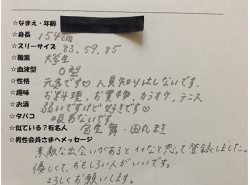 ☆なまえ・年齢
☆身長 154cm
☆スリーサイズ 83, 59, 85
☆職業 大学生
☆血液型 O型
☆性格 元気です♡ 人見知りはしないです。
☆趣味 お料理、お買物、カラオケ、テニス
☆お酒 弱いですけど好きです♡
☆タバコ 吸わないです
☆似ている?有名人
☆男性会員さまへメッセージ
素敵な出会いがあるとイイなと思って登録しました。
優しくて、おもしろい人がいいです。
よろしくお願いします。